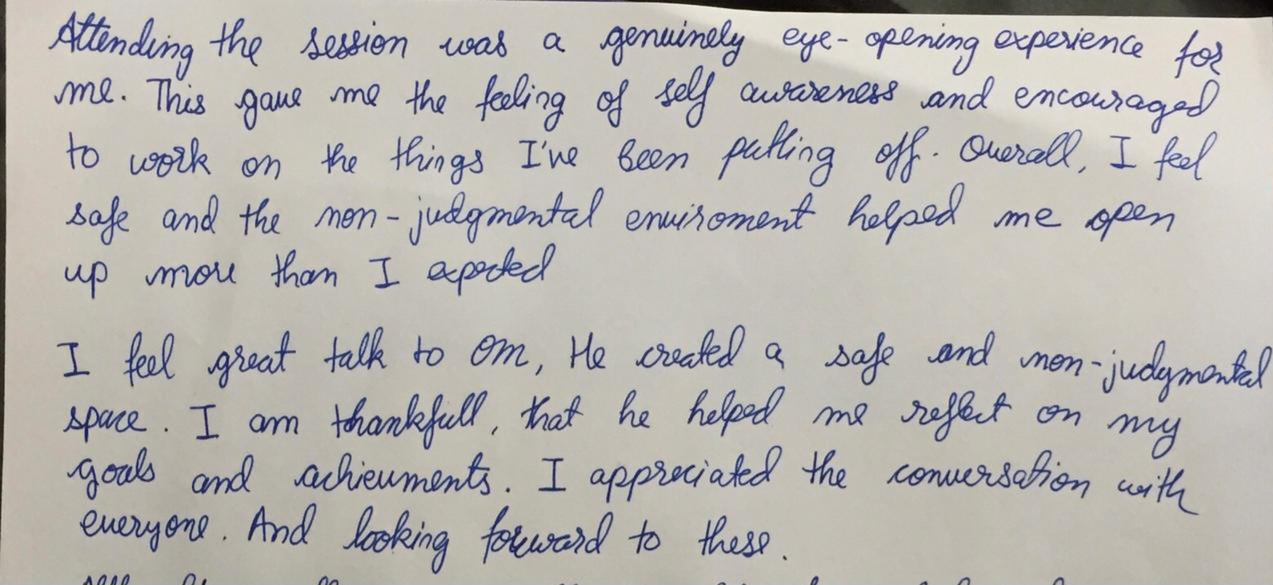 Attending the session was a genuinely eye-opening experience for
me. This gave me the feeling of self awareness and encouraged
to work on the things I've been putting off. Overall, I feel
safe and the non-judgmental enviroment helped me open
up more than I expected
I feel great talk to Om, He created a safe and non-judgmental
space. I am thankfull, that he helped me reflect on my
goals and achievments. I appreciated the conversation with
everyone. And looking forward to these.